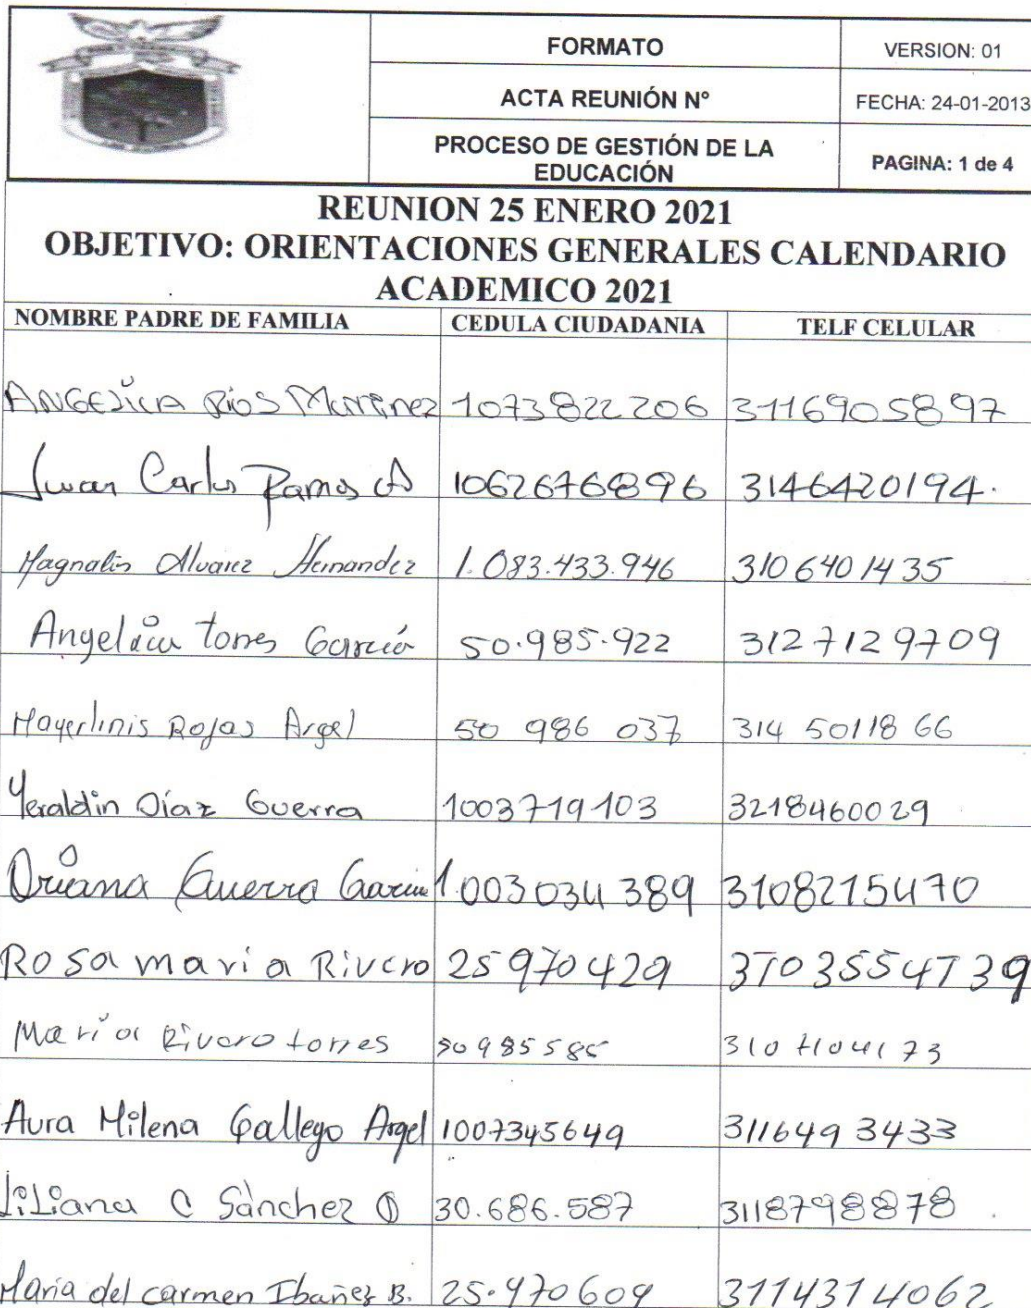 FORMATO VERSION: 01
ACTA REUNIÓN Nº FECHA: 24-01-2013
PROCESO DE GESTIÓN DE LA
EDUCACIÓN PAGINA: 1 de 4
REUNION 25 ENERO 2021
OBJETIVO: ORIENTACIONES GENERALES CALENDARIO
ACADEMICO 2021
NOMBRE PADRE DE FAMILIA CEDULA CIUDADANIA TELF CELULAR
ANGELICA Ríos Martinez 1073822206 3116905897
Juan Carlos Ramos 1062676896 3146420194.
Magnalis Alvarez Hernandez 1.083.433.946 3106401435
Angelica torres García 50.985.922 3127129709
Mayerlinis Rojas Argel 50 986 037 314 50118 66
Yeraldin Díaz Guerra 1003719103 3218460029
Oriana Guerra Garcia 1.003034389 3108215470
Rosa maria Rivero 25970429 3103554739
Maria Rivero torres 50985585
Aura Milena Gallego Argel 1007345649 3116493433
Liliana C Sánchez O 30.686.587 3118798878
Maria del carmen Ibañez B. 25.970609 3114314062